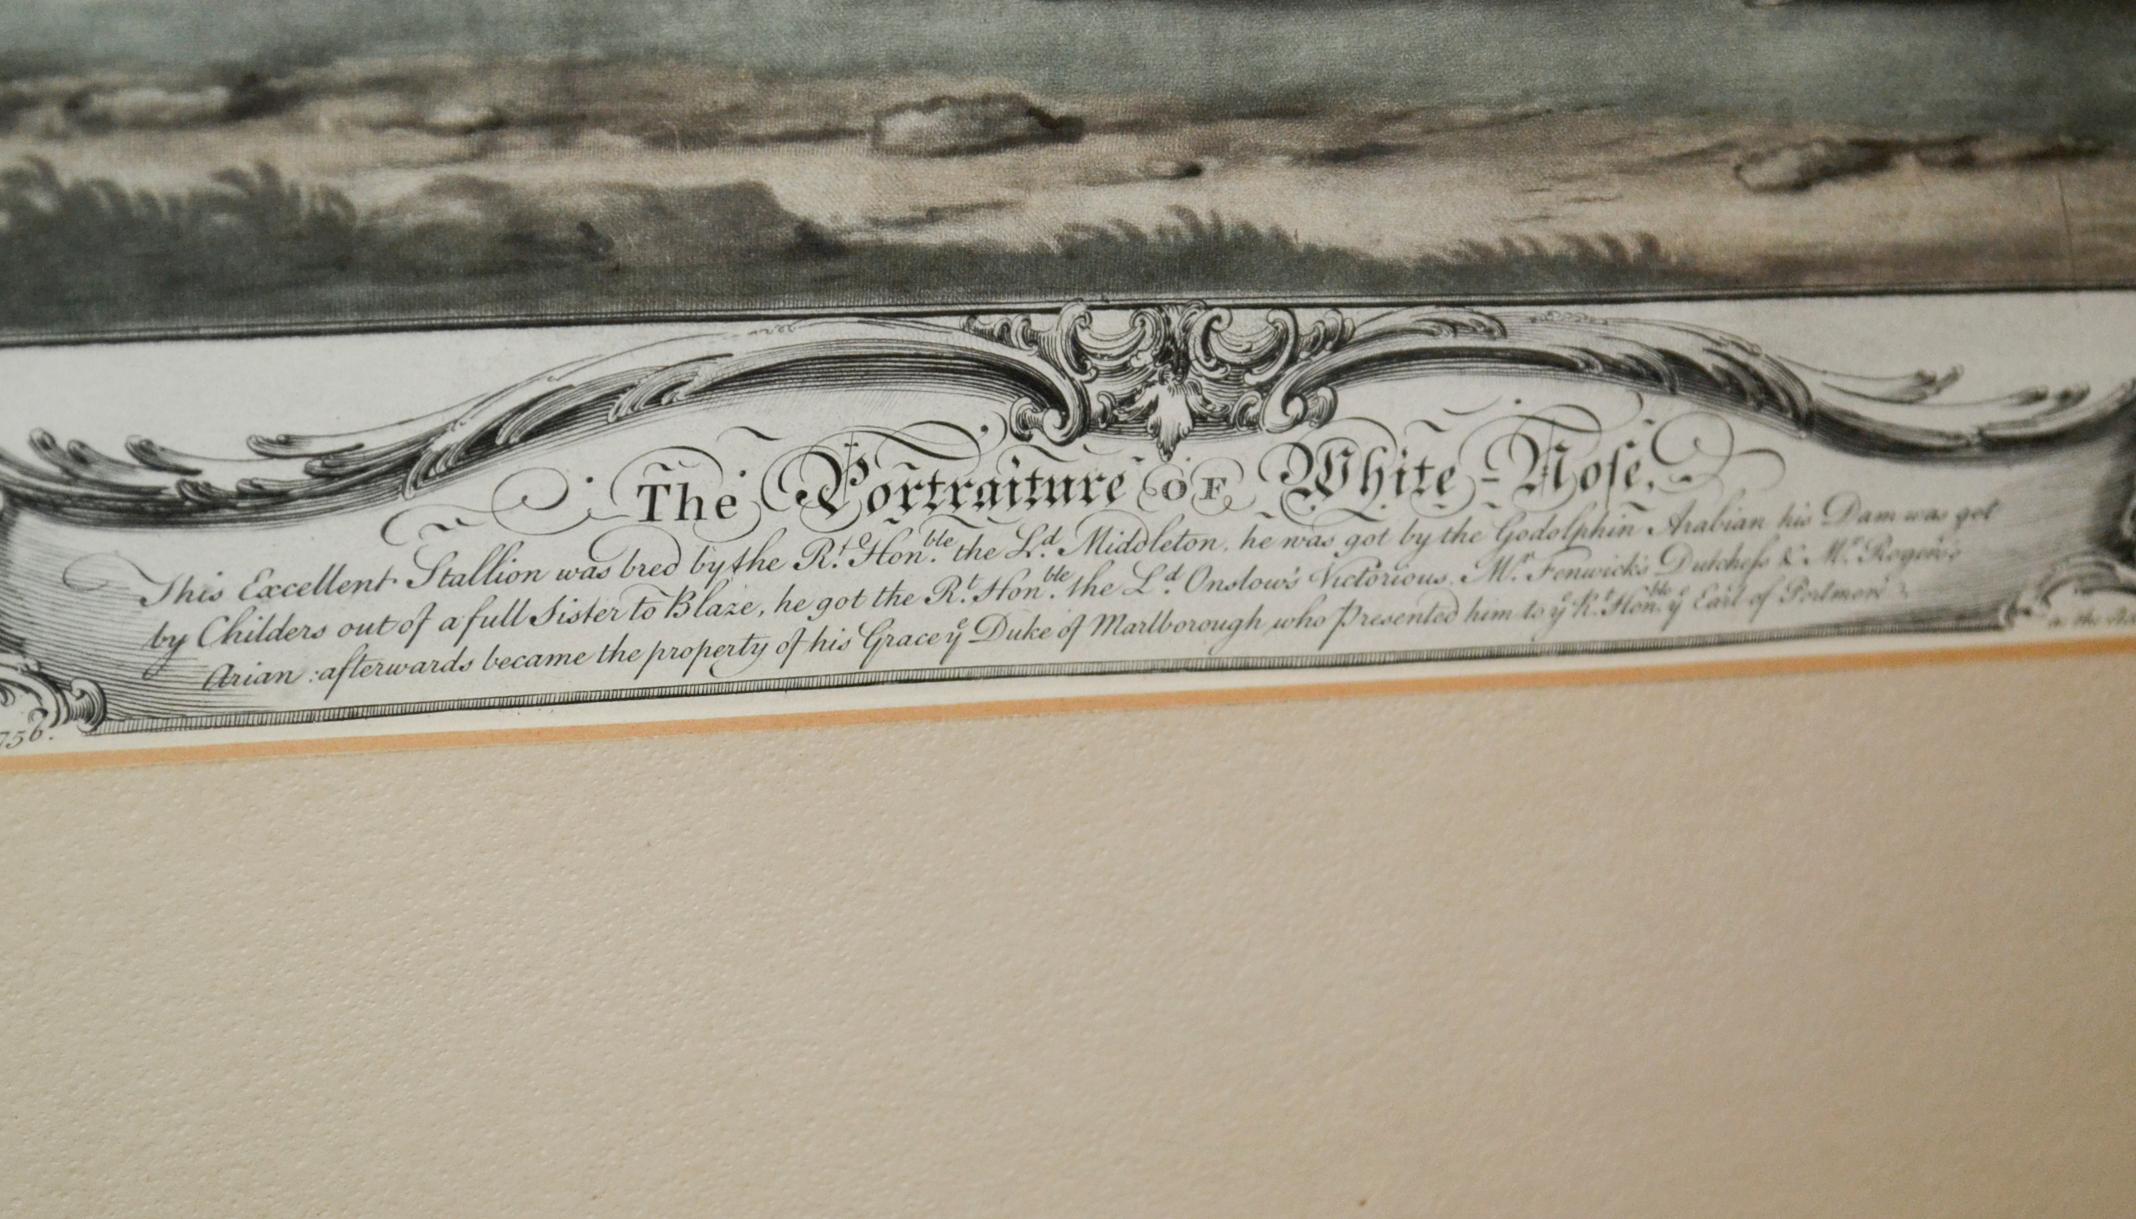 The Portraiture OF White-Noſe.
This Excellent Stallion was bred by the Rt. Honble. the Ld. Middleton, he was got by the Godolphin Arabian his Dam was got
by Childers out of a full Sister to Blaze, he got the Rt. Honble. the Ld. Onslow's Victorious, Mr. Fenwick's Dutcheſs & Mr. Rogers's
Arian : afterwards became the property of his Grace ye Duke of Marlborough who Presented him to ye Rt. Honble. ye Earl of Portmore
756.